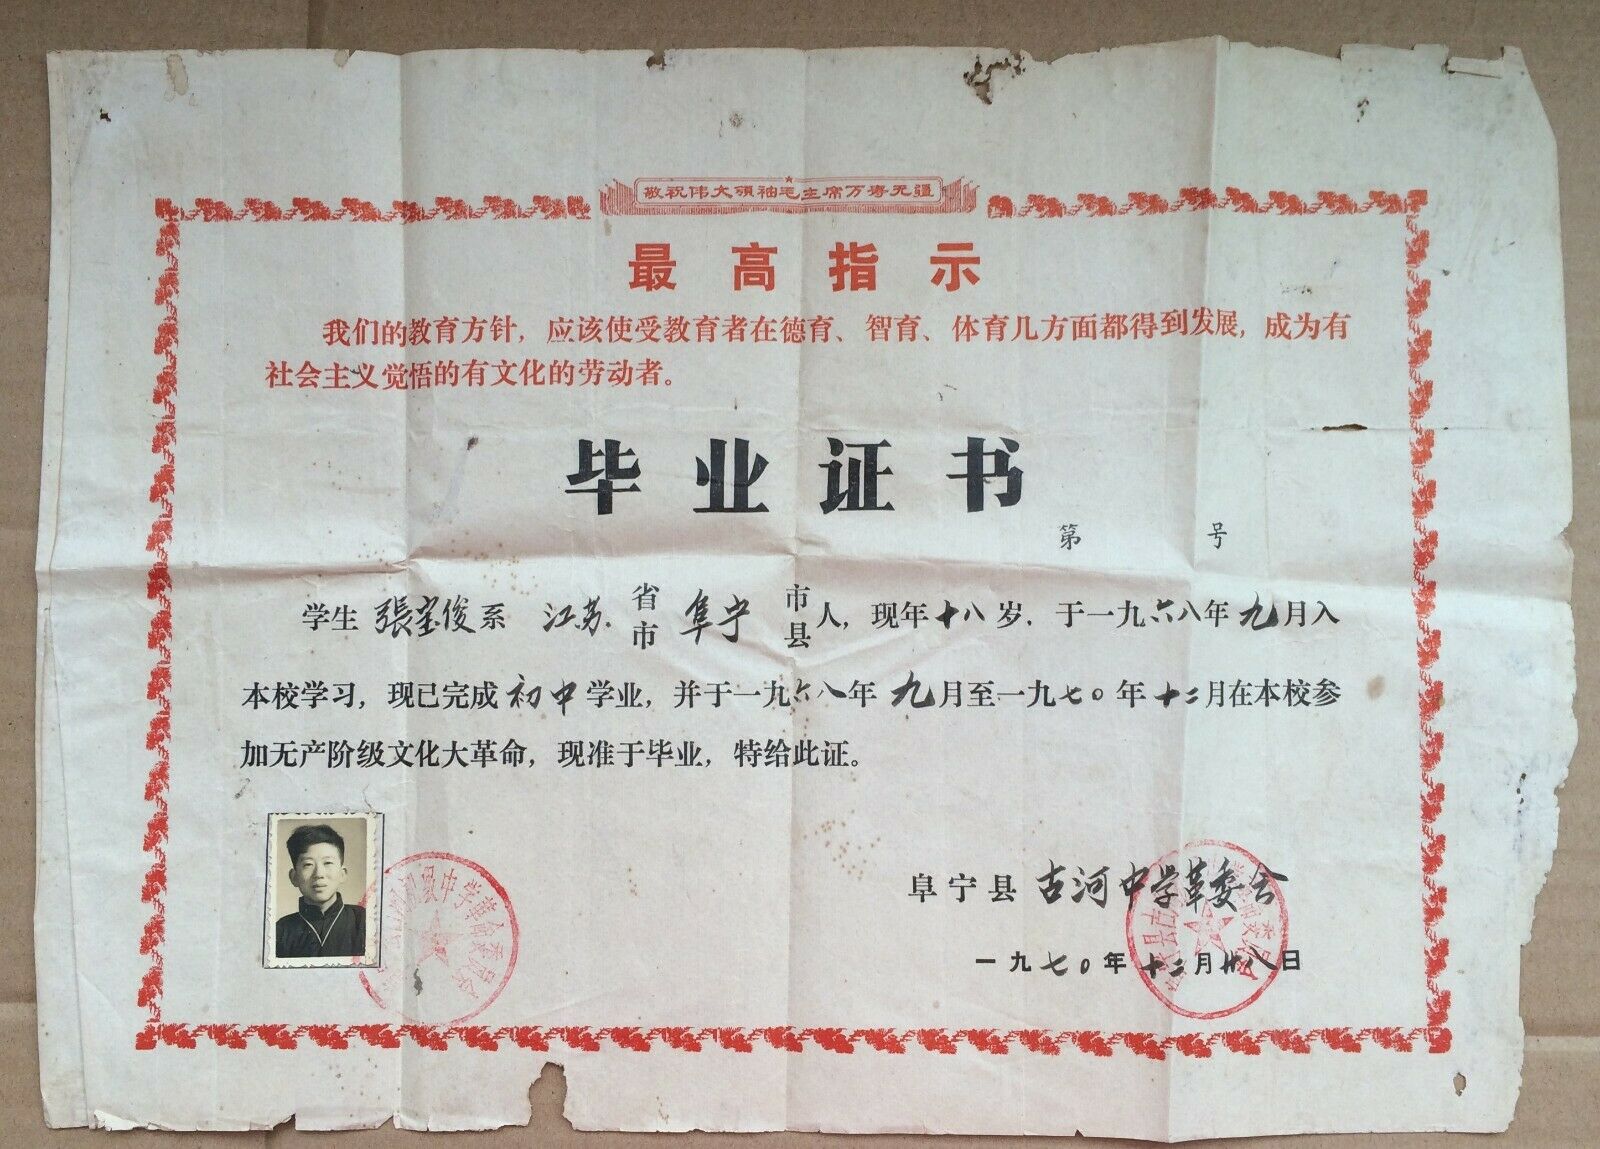 敬祝伟大领袖毛主席万寿无疆
最高指示
我们的教育方针，应该使受教育者在德育、智育、体育几方面都得到发展，成为有
社会主义觉悟的有文化的劳动者。
毕业证书
第 号
学生 張宝俊 系 江苏 省市 阜宁 市县 人，现年十八岁，于一九六八年九月入
本校学习，现已完成初中学业，并于一九六八年九月至一九七〇年十二月在本校参
加无产阶级文化大革命，现准于毕业，特给此证。
阜宁县 古河中学革委会
一九七〇年十二月廿八日